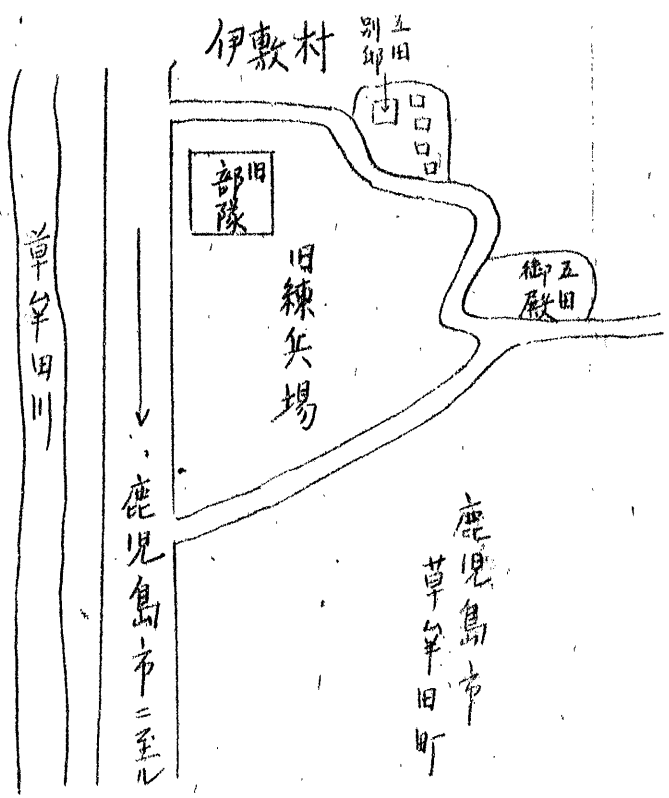 伊敷村
玉里
別邸
旧
部隊
旧練兵場
玉里
御殿
草牟田川
鹿児島市ニ至ル
鹿児島市
草牟田町